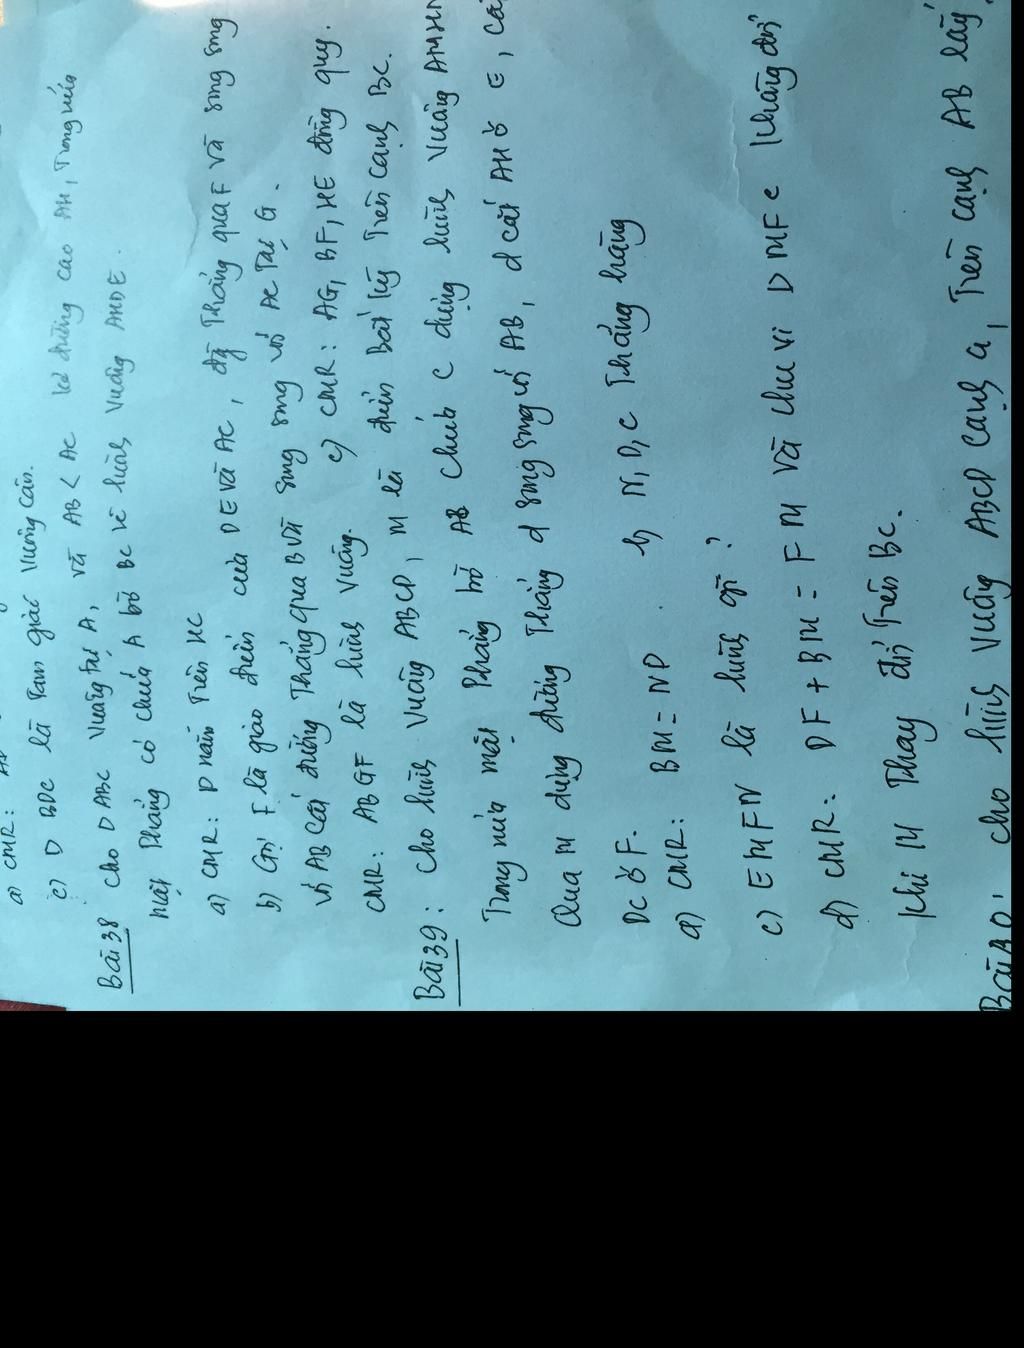 a) CMR:
c) D BDC là Tam giác Vuông Cân.
Bài 38 cho D ABC Vuông tại A, và AB < AC kẻ đường cao AH, Trong nửa
mặt Phẳng có chứa A bờ BC vẽ hình Vuông AHDE.
a) CMR: D nằm Trên HC
b) Gọi F là giao điểm của DE và AC, đg Thẳng qua F và song song
với AB Cắt đường Thẳng qua B và song song với AC Tại G.
CMR: ABGF là hình Vuông. c) CMR: AG, BF, HE đồng quy.
Bài 39: Cho hình Vuông ABCD, M là điểm Bất Kỳ Trên cạnh BC.
Trong nửa mặt Phẳng bờ AB Chứa C dựng hình Vuông AMHN
Qua M dựng đường Thẳng d song song với AB, d cắt AH ở E, Cắ
DC ở F.
a) CMR: BM = ND . b) N, D, C Thẳng hàng
c) EMFN là hình gì ?
d) CMR: DF + BM = F M và chu vi D MFC Không đổi
Khi M Thay đổi Trên BC.
cho hình Vuông ABCD Cạnh a, Trên cạnh AB lấy